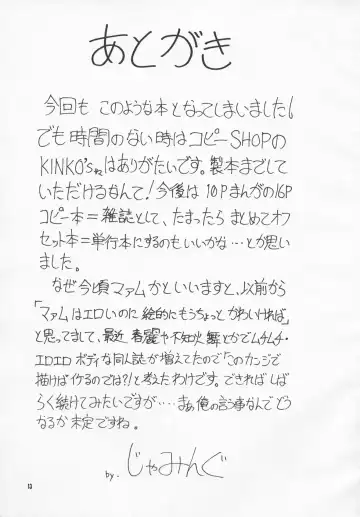 あとがき
今回も このような本となってしまいました。
でも時間のない時はコピーSHOPの
KINKO's等はありがたいです。製本までして
いただけるなんて!今後は10Pまんがの16P
コピー本=雑誌として、たまったら まとめてオフ
セット本=単行本にするのもいいかな…とか思い
ました。
なぜ今頃マァムかといいますと、以前から
「マァムはエロいのに絵的にもうちょっとかわいければ」
と思ってまして、最近 春麗や不知火舞とかでムチムチ・
エロエロ ボディな同人誌が増えてたので「このカンジで
描けばイケるのでは?!」と考えたわけです。できればしば
らく続けてみたいですが‥‥まぁ俺の言う事なんでどう
なるか未定ですね。
by. じゃみんぐ
13